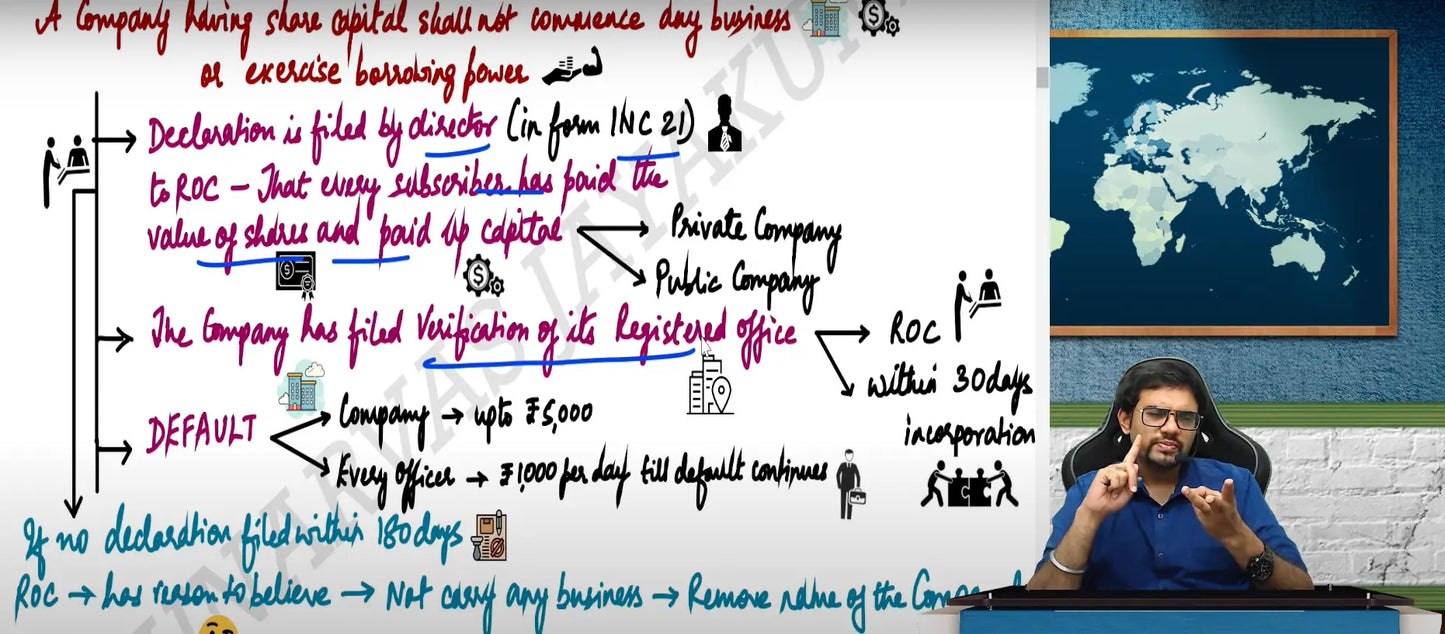 A Company having share capital shall not commence any business
or exercise borrowing power
Declaration is filed by director (in form INC 21)
to ROC – That every subscriber has paid the
value of shares and paid up capital
Private Company
Public Company
The Company has filed Verification of its Registered office
ROC
within 30 days
incorporation
DEFAULT
Company → upto ₹5,000
Every officer → ₹1,000 per day till default continues
If no declaration filed within 180 days
ROC → has reason to believe → Not carry any business → Remove name of the